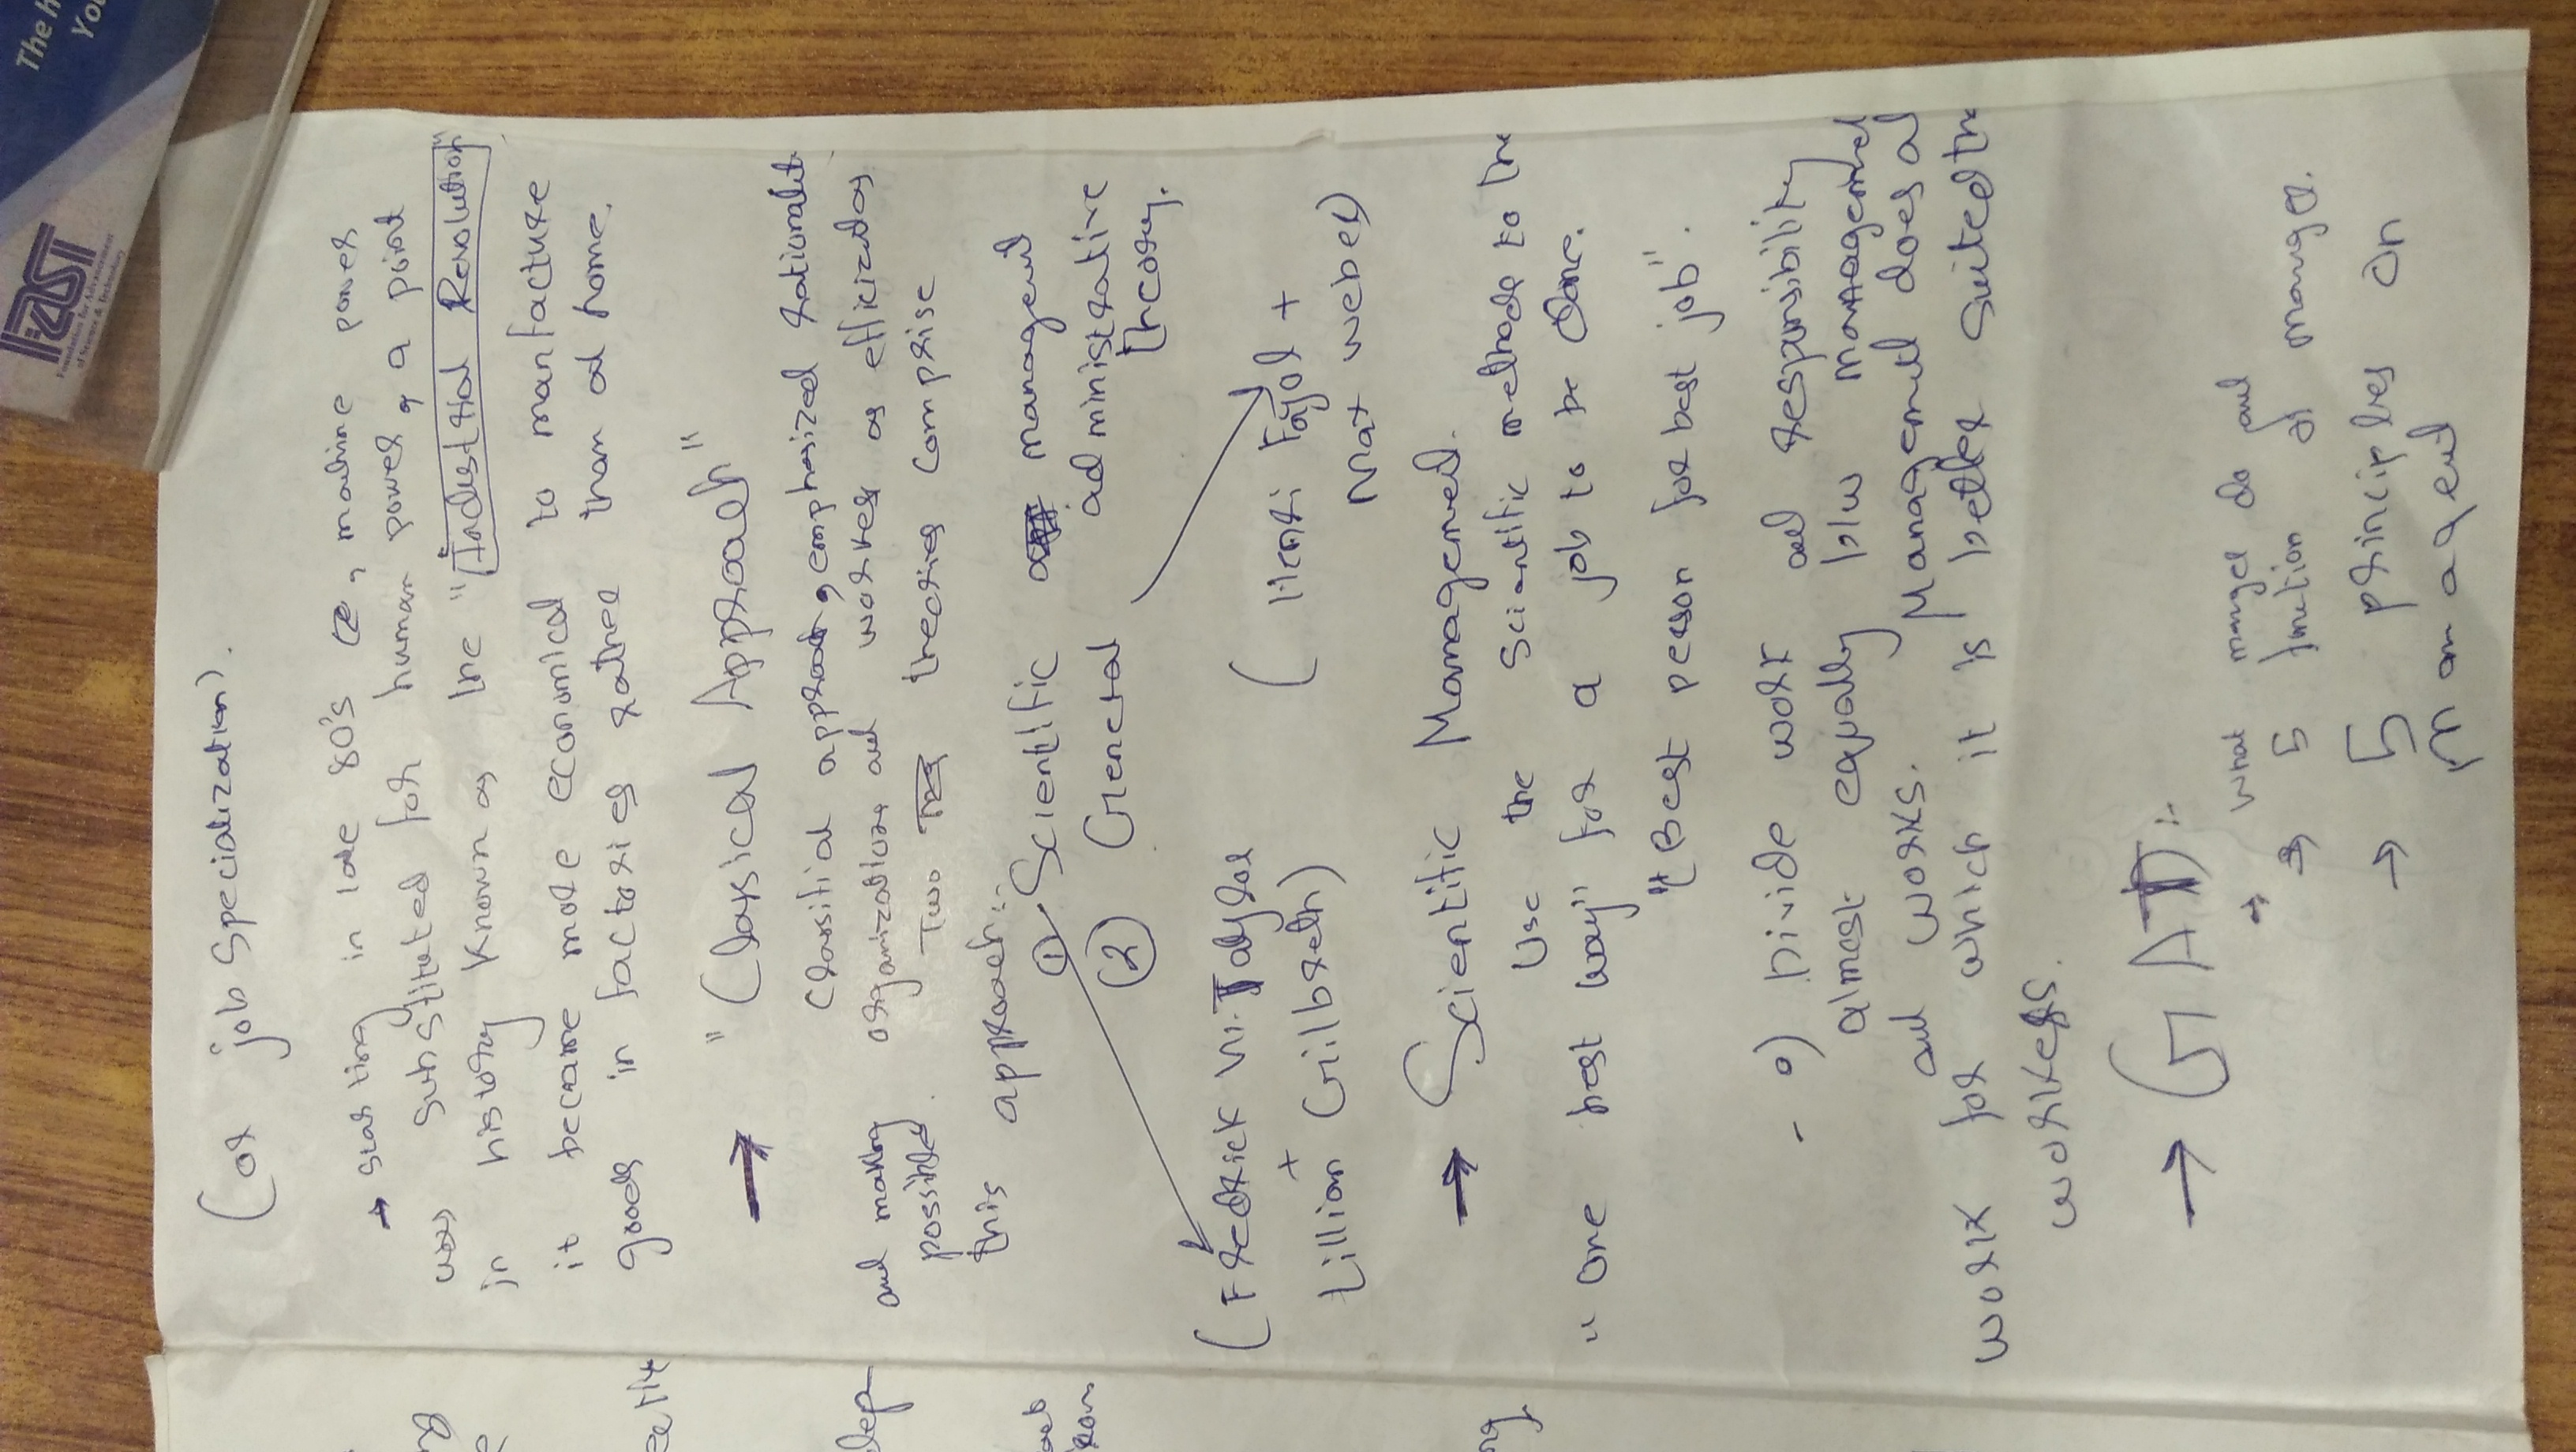 FAST
Foundation for Advancement
of Science & Technology
The h
You
(or job Specialization).
→ starting in late 80's, machine power
was substituted for human power, a point
in history known as the "Industrial Revolution"
it became more economical to manfacture
goods in factories rather than at home.
→ "Classical Approach"
Classifial approach, emphasized rationalit
and making organizations and workers as efficient as
possible. Two theories comprise
this approach:-
① Scientific management
② General administrative
theory.
(Fredrick W. Taylor
+
Lillian Gilbreth)
(Henri Fayol +
Max weber)
→ Scientific Management.
Use the Scientific methods to the
"one best way" for a job to be done.
"(Best person for best job".
- o) Divide work and responsibility
almost equally b/w management
and works. Management does al
work for which it is better suited tha
workers.
→ GAT:-
→ what manger do and
→ 5 function of manger.
→ 5 principles on
Managent
ng
e
ective
dep
ng